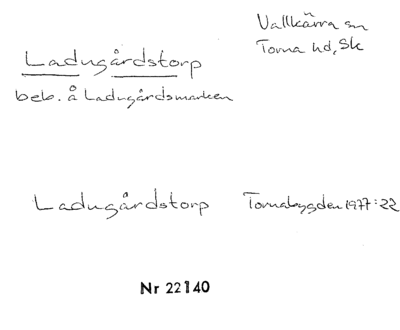 Vallkärra sn
Torna hd, Sk
Ladugårdstorp
beb. å Ladugårdsmarken
Ladugårdstorp Tornabygden 1977:22
Nr 22140